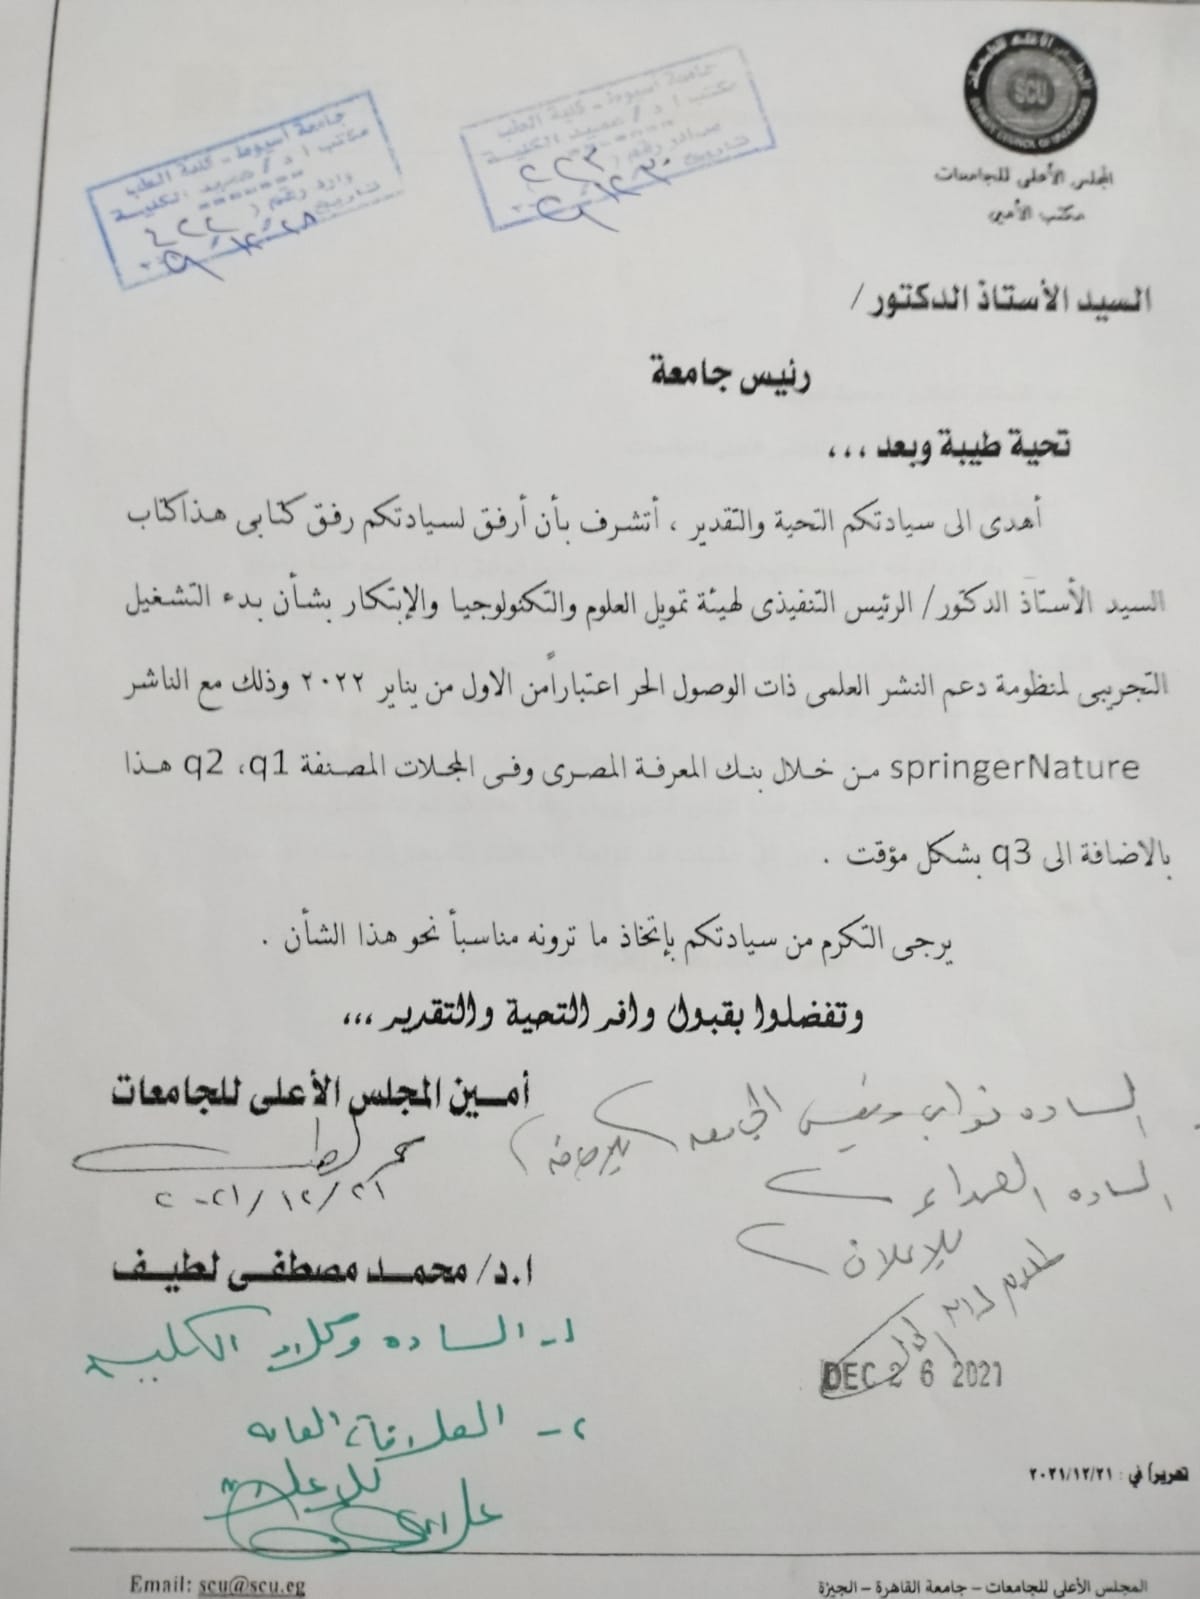 SCU
المجلس الأعلى للجامعات
مكتب الأمين
جامعة أسيوط - كلية الطب
مكتب ا.د/ عميد الكلية
صادر رقم ( ٢٢٣
تاريخ
جامعة أسيوط - كلية الطب
مكتب ا.د/ عميد الكلية
وارد رقم (
تاريخ
السيد الأستاذ الدكتور /
رئيس جامعة
تحية طيبة وبعد ،،،
أهدى الى سيادتكم التحية والتقدير ، أتشرف بأن أرفق لسيادتكم رفق كتابى هذا كتاب
السيد الأستاذ الدكتور/ الرئيس التنفيذى لهيئة تمويل العلوم والتكنولوجيا والإبتكار بشأن بدء التشغيل
التجريبى لمنظومة دعم النشر العلمى ذات الوصول الحر اعتباراً من الاول من يناير ٢٠٢٢ وذلك مع الناشر
springerNature من خلال بنك المعرفة المصرى وفى المجلات المصنفة q1، q2 هذا
بالاضافة الى q3 بشكل مؤقت .
يرجى التكرم من سيادتكم بإتخاذ ما ترونه مناسباً نحو هذا الشأن .
وتفضلوا بقبول وافر التحية والتقدير ،،،
أمين المجلس الأعلى للجامعات
٢٠٢١/١٢/٢١
ا.د/ محمد مصطفى لطيف
الساده نواب رئيس الجامعه
الساده العمداء
للإعلان
DEC 26 2021
١- الساده وكلاء الكليه
٢- العلاقات العامه
للإعلان
تحريراً في : ٢٠٢١/١٢/٢١
المجلس الأعلى للجامعات – جامعة القاهرة – الجيزة
Email: scu@scu.eg